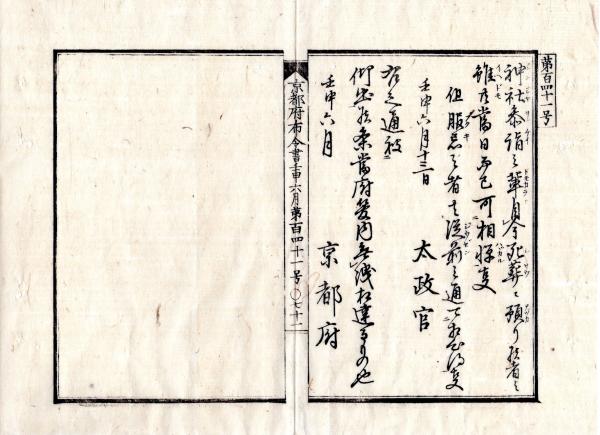 第百四十一号
神社参詣之輩自今死葬ニ預り候者
雖モ當日而已可相憚事
但服忌之者ハ従前之通可相心得事
壬申六月十三日 太政官
右之通被
仰出候条當府管内無洩相達るもの也
壬申六月 京都府
京都府布令書壬申六月第百四十一号〇七十二